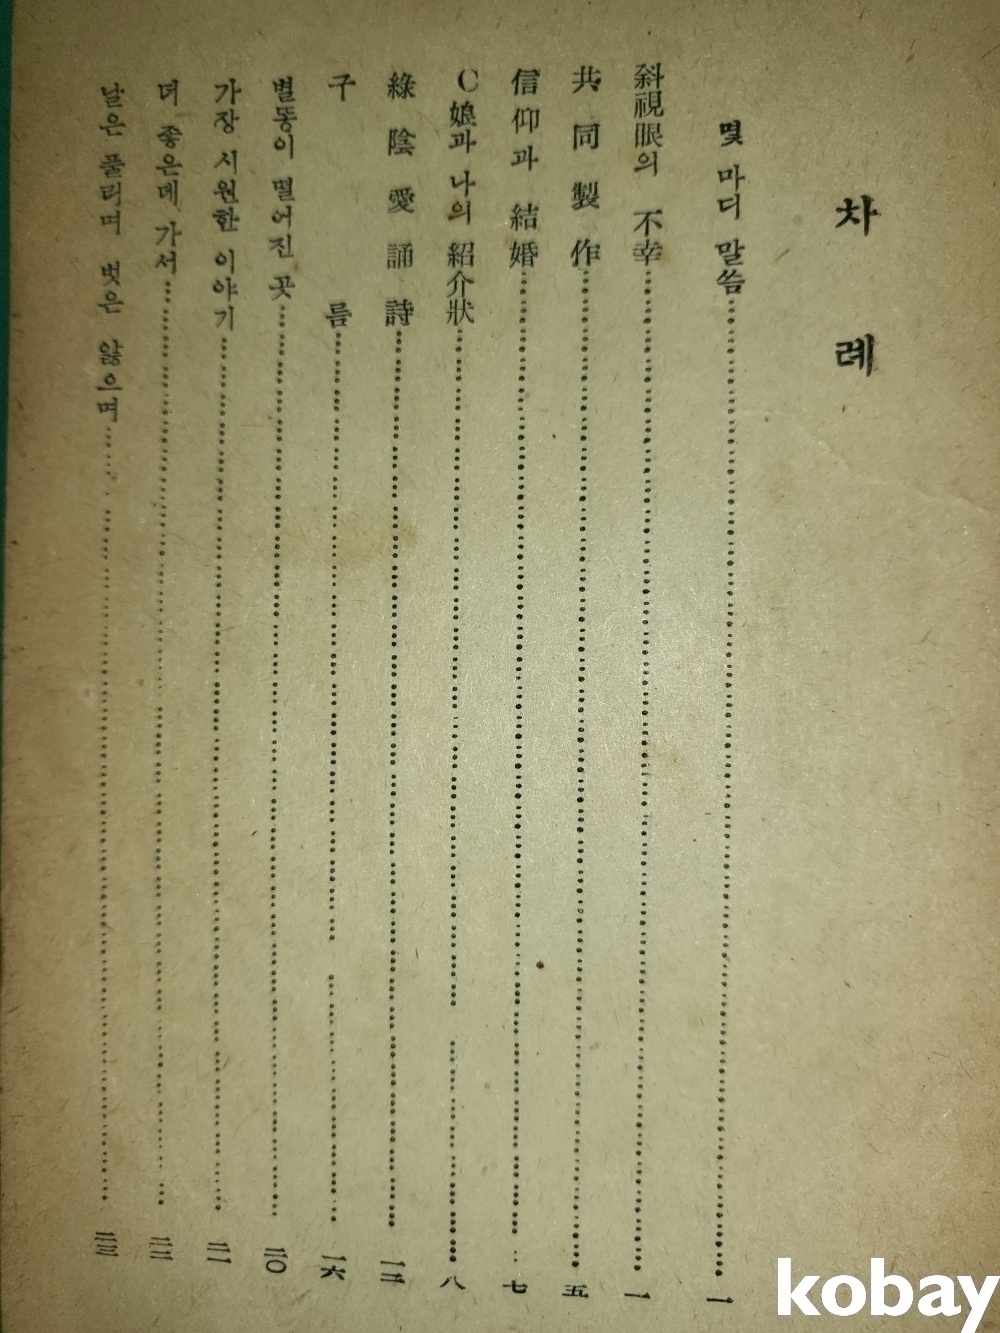 차례
몇 마디 말씀……一
斜視眼의 不幸……一
共同製作……五
信仰과 結婚……七
C娘과 나의 紹介狀……八
綠陰愛誦詩……一二
구름……一六
별똥이 떨어진 곳……二〇
가장 시원한 이야기……二一
더 좋은데 가서……二二
날은 풀리며 벗은 앓으며……二三
kobay